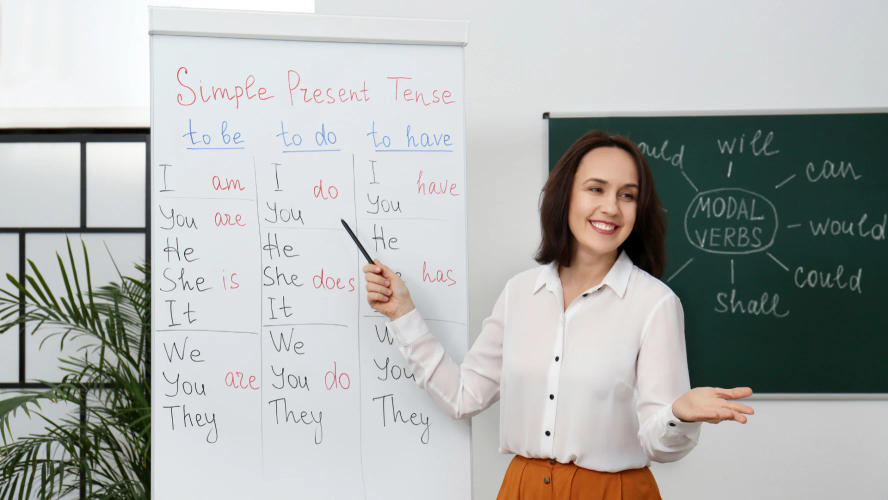 Simple Present Tense
to be to do to have
I am I do I have
You are You You
He He He
She is She does has
It It
We We
You are You do You
They They They
will
can
MODAL
VERBS
would
could
Shall